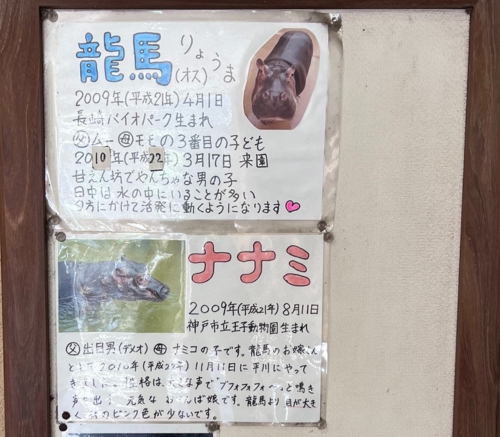 龍馬 りょうま
(オス)
2009年(平成21年)4月1日
長崎バイオパーク生まれ
父ムー 母モモの3番目の子ども
2010年(平成22年)3月17日 来園
甘えん坊でやんちゃな男の子
日中は水の中にいることが多い
夕方にかけて活発に動くようになります
ナナミ
2009年(平成21年)8月11日
神戸市立王子動物園生まれ
父 出目男(デメオ) 母 ナミコの子です。龍馬のお嫁さん
として2010年(平成22年)11月11日に平川にやって
きました。性格は、大きな声で"ブフォフォフォーっと鳴き
声を出す 元気な おてんば娘です。龍馬より目が大き
く、のピンク色が少ないです。